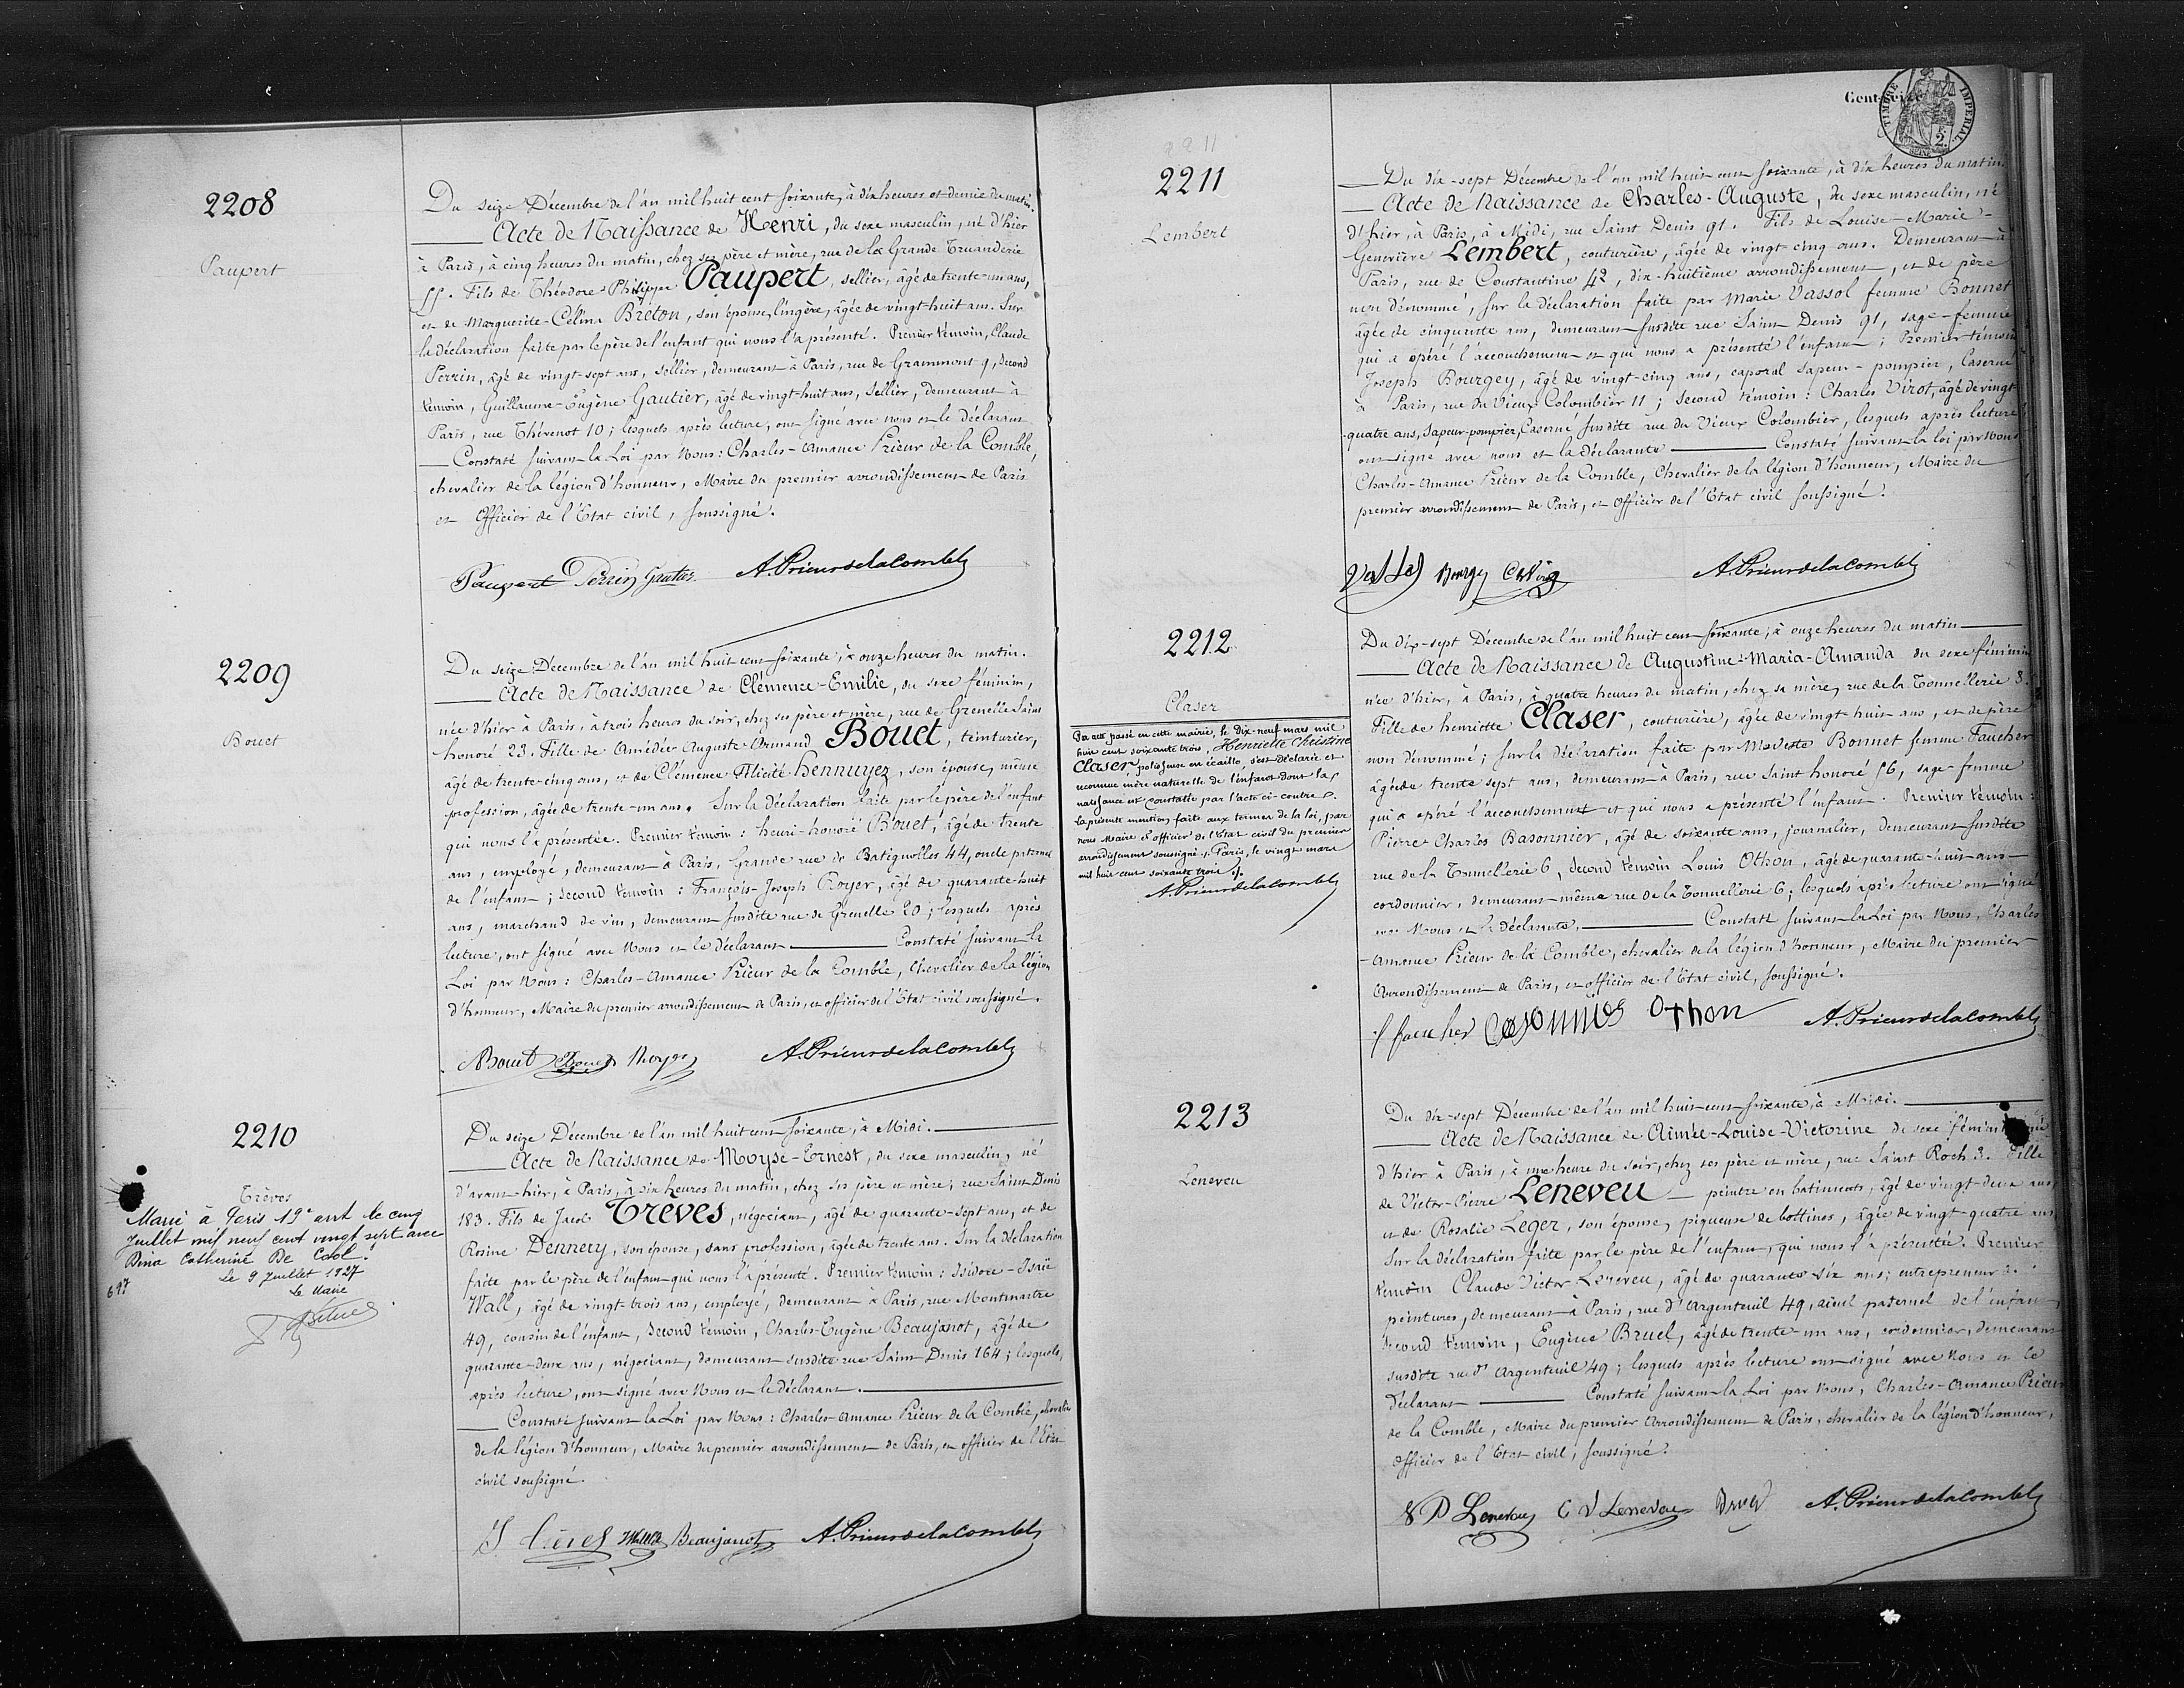 2208
Paupert
Du seize Décembre de l'an mil huit cent soixante, à dix heures et demie du matin.
Acte de Naissance de Henri, du sexe masculin, né d'hier
à Paris, à cinq heures du matin, chez ses père et mère, rue de la Grande Truanderie
55. Fils de Théodore Philippe Paupert, sellier, âgé de trente-un ans,
et de Marguerite-Célina Breton, son épouse, lingère, âgée de vingt-huit ans. Sur
la déclaration faite par le père de l'enfant qui nous l'a présenté. Premier témoin, Claude
Perrin, âgé de vingt-sept ans, sellier, demeurant à Paris, rue de Grammont 9, second
témoin, Guillaume-Eugène Gautier, âgé de vingt-huit ans, sellier, demeurant à
Paris, rue Thévenot 10; lesquels après lecture, ont signé avec nous et le déclarant
Constaté suivant la Loi par Nous: Charles-Amance Prieur de la Comble,
chevalier de la légion d'honneur, Maire du premier arrondissement de Paris
et Officier de l'Etat civil, soussigné.
Paupert Perrin Gautier A. Prieur de la Comble
2209
Bouct
Du seize Décembre de l'an mil huit cent soixante, à onze heures du matin.
Acte de Naissance de Clémence-Emilie, du sexe féminin,
née d'hier à Paris, à trois heures du soir, chez ses père et mère, rue de Grenelle Saint
honoré 23. Fille de Amédée Auguste Armand Bouct, teinturier,
âgé de trente-cinq ans, et de Clémence Félicité Hennuyez, son épouse, même
profession, âgée de trente-un ans. Sur la déclaration faite par le père de l'enfant
qui nous l'a présentée. Premier témoin: henri-honoré Bouct, âgé de trente
ans, employé, demeurant à Paris, Grande rue de Batignolles 44, oncle paternel
de l'enfant; second témoin: François-Joseph Royer, âgé de quarante-huit
ans, marchand de vin, demeurant susdite rue de Grenelle 20; lesquels après
lecture, ont signé avec Nous et le déclarant Constaté suivant la
Loi par Nous: Charles-Amance Prieur de la Comble, Chevalier de la légion
d'honneur, Maire du premier arrondissement de Paris, et officier de l'Etat civil soussigné.
A Bouct Bouct Royer A. Prieur de la Comble
2210
Trèves
Marié à Paris 19e arrt le cinq
Juillet mil neuf cent vingt sept avec
Dina Catherine De
Le 9 Juillet 1927
Le Maire
697
Du seize Décembre de l'an mil huit cent soixante, à Midi.
Acte de Naissance de Moyse-Ernest, du sexe masculin, né
d'avant-hier, à Paris, à six heures du matin, chez ses père et mère, rue Saint Denis
183. Fils de Jacob Trèves, négociant, âgé de quarante-sept ans, et de
Rosine Dennery, son épouse, sans profession, âgée de trente ans. Sur la déclaration
faite par le père de l'enfant qui nous l'a présenté. Premier témoin: Isidore-Isaïe
Wall, âgé de vingt-trois ans, employé, demeurant à Paris, rue Montmartre
49, cousin de l'enfant, second témoin, Charles-Eugène Beaujanot, âgé de
quarante-deux ans, négociant, demeurant susdite rue Saint Denis 164; lesquels,
après lecture, ont signé avec Nous et le déclarant.
Constaté suivant la Loi par Nous: Charles-Amance Prieur de la Comble, chevalier
de la légion d'honneur, Maire du premier arrondissement de Paris, et officier de l'Etat
civil soussigné.
J. Trèves Beaujanot A. Prieur de la Comble
Cent seize
TIMBRE IMPERIAL
2211
2211
Lembert
Du dix-sept Décembre de l'an mil huit cent soixante, à dix heures du matin
Acte de Naissance de Charles-Auguste, du sexe masculin, né
d'hier, à Paris, à Midi, rue Saint Denis 91. Fils de Louise-Marie-
Geneviève Lembert, couturière, âgée de vingt cinq ans. Demeurant à
Paris, rue de Constantine 42, dix-huitième arrondissement, et de père
non dénommé, sur la déclaration faite par Marie Vassol femme Bonnet
âgée de cinquante ans, demeurant susdite rue Saint Denis 91, sage-femme
qui a opéré l'accouchement et qui nous a présenté l'enfant; Premier témoin
Joseph Bourgey, âgé de vingt-cinq ans, caporal sapeur-pompier, Caserné
à Paris, rue du Vieux Colombier 11; second témoin: Charles Virot, âgé de vingt
-quatre ans, Sapeur-pompier, Caserne susdite rue du Vieux Colombier, lesquels après lecture
ont signé avec nous et la déclarante Constaté suivant la loi par Nous
Charles-Amance Prieur de la Comble, Chevalier de la légion d'honneur, Maire du
premier arrondissement de Paris, et Officier de l'Etat civil soussigné.
Bourgey A. Prieur de la Comble
2212
Claser
Par acte passé en cette mairie, le dix-neuf mars mil
huit cent soixante trois, Henriette Christine
Claser, polisseuse en écaille, s'est déclarée et
reconnue mère naturelle de l'enfant dont la
naissance est constatée par l'acte ci-contre.
La présente mention faite aux termes de la loi, par
nous Maire & officier de l'Etat civil du premier
arrondissement soussigné. Paris, le vingt mars
mil huit cent soixante trois.
A. Prieur de la Comble
Du dix-sept Décembre de l'an mil huit cent soixante, à onze heures du matin
Acte de Naissance de Augustine-Maria-Amanda du sexe féminin
née d'hier, à Paris, à quatre heures du matin, chez sa mère, rue de la Tonnellerie 3.
Fille de henriette Claser, couturière, âgée de vingt-huit ans, et de père
non dénommé; sur la déclaration faite par Modeste Bonnet femme Faucher
âgée de trente sept ans, demeurant à Paris, rue Saint honoré 56, sage-femme
qui a opéré l'accouchement et qui nous a présenté l'enfant. Premier témoin:
Pierre Charles Basonnier, âgé de soixante ans, journalier, demeurant susdite
rue de la Tonnellerie 6, second témoin Louis Othon, âgé de quarante-huit ans
cordonnier, demeurant même rue de la Tonnellerie 6; lesquels après lecture ont signé
avec Nous et la déclarante. Constaté suivant la Loi par Nous, Charles
-Amance Prieur de la Comble, chevalier de la légion d'honneur, Maire du premier
Arrondissement de Paris, et officier de l'Etat civil, soussigné.
f faucher Basonnier Othon A. Prieur de la Comble
2213
Leneveu
Du dix-sept Décembre de l'an mil huit cent soixante, à Midi.
Acte de Naissance de Aimée-Louise-Victorine du sexe féminin, née
d'hier à Paris, à une heure du soir, chez ses père et mère, rue Saint Roch 3. Fille
de Victor-Pierre Leneveu peintre en batiments, âgé de vingt-deux ans
et de Rosalie Leger, son épouse, piqueuse de bottines, âgée de vingt-quatre ans
Sur la déclaration faite par le père de l'enfant, qui nous l'a présentée. Premier
témoin Claude Victor Leneveu, âgé de quarante six ans, entrepreneur de
peintures, demeurant à Paris, rue d'Argenteuil 49, aïeul paternel de l'enfant,
second témoin, Eugène Bruel, âgé de trente-un ans, cordonnier, demeurant
susdite rue d'Argenteuil 49; lesquels après lecture ont signé avec Nous et le
déclarant Constaté suivant la Loi par Nous, Charles-Amance Prieur
de la Comble, Maire du premier Arrondissement de Paris, chevalier de la légion d'honneur,
Officier de l'Etat civil, soussigné.
V P Leneveu C V Leneveu Bruel A. Prieur de la Comble